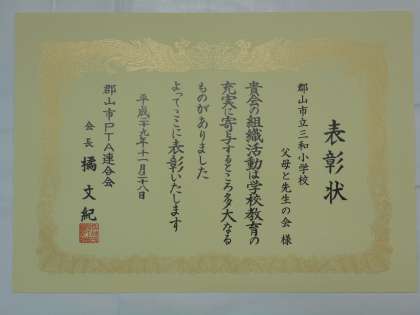 表彰状
郡山市立三和小学校
父母と先生の会 様
貴会の組織活動は学校教育の
充実に寄与するところ多大なる
ものがありました
よってここに表彰いたします
平成二十九年十一月二十八日
郡山市PTA連合会
会長 橘 文紀